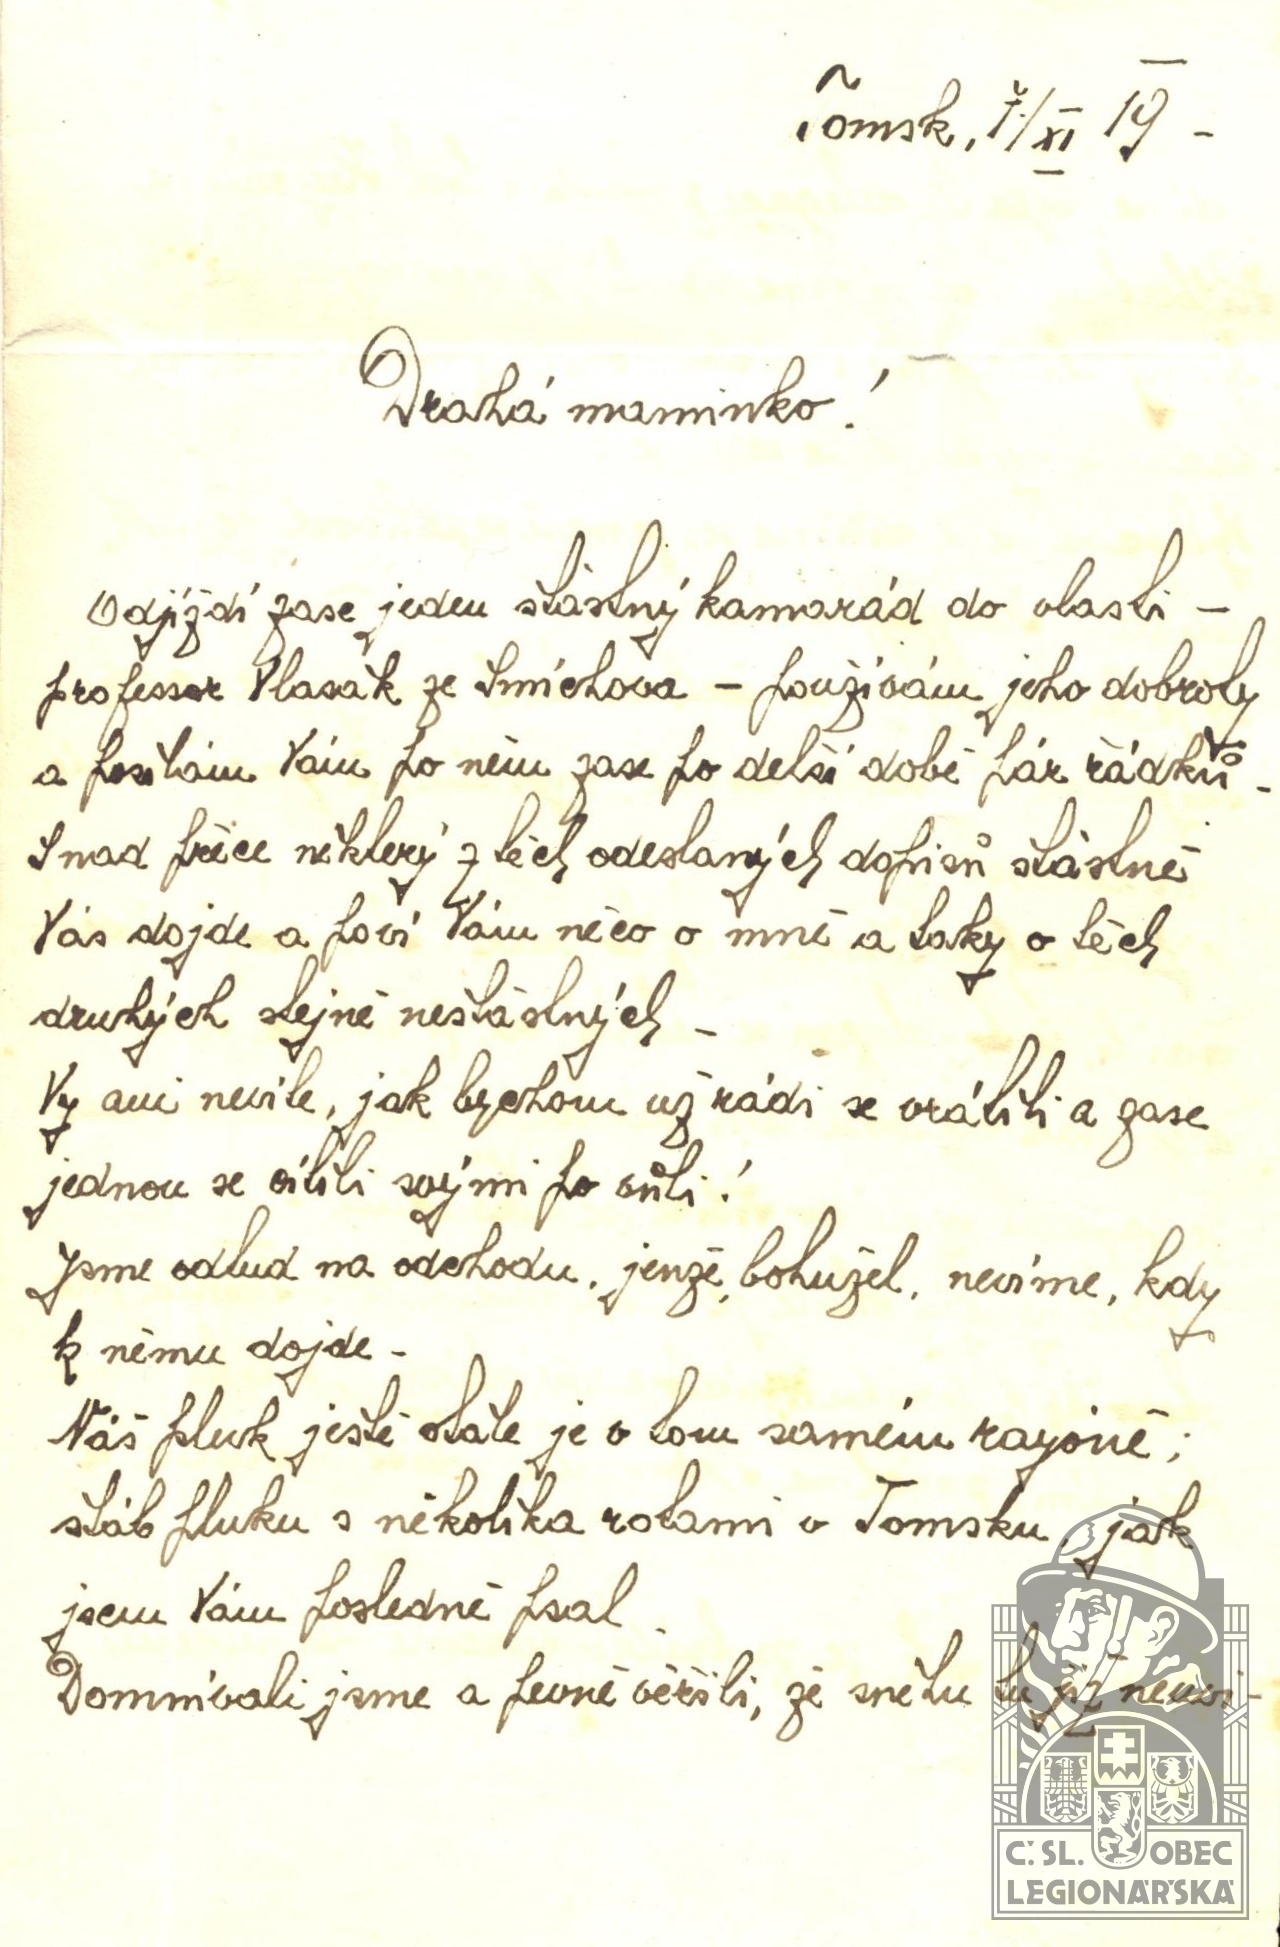 Tomsk, 7./XI 19 -
Drahá maminko!
Odjíždí zase jeden šťástný kamarád do vlasti -
professor Vlasák ze Smíchova - používám jeho dobroty
a posílám Vám po něm zase po delší době pár řádků -
Snad přece některý z těch odeslaných dopisů šťástně
Vás dojde a poví Vám něco o mně a taky o těch
druhých stejně nešťástných -
Vy ani nevíte, jak bychom už rádi se vrátili a zase
jednou se cítili svými po vůli!
Jsme odtud na odchodu, jenže, bohužel, nevíme, kdy
k němu dojde -
Náš pluk ještě stále je v tom samém rayóně;
štáb pluku s několika rotami v Tomsku, jak
jsem Vám posledně psal.
Domnívali jsme a pevně věřili, že sněhu tu již neuvi-
Č. SL. OBEC
LEGIONÁŘSKÁ